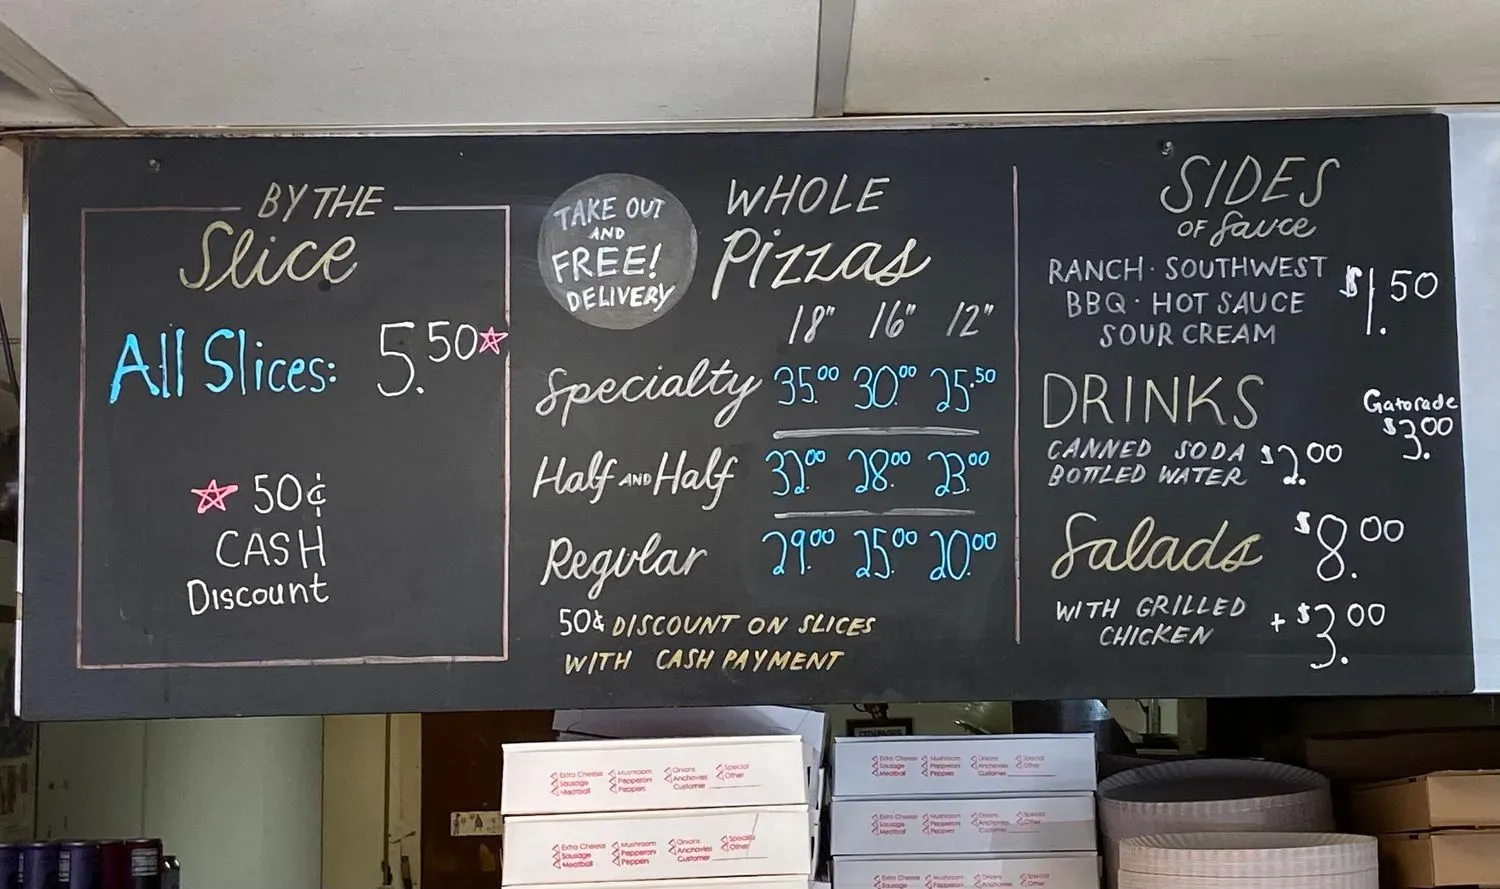 BY THE
Slice
All Slices: 5.50☆
☆ 50¢
CASH
Discount
TAKE OUT
AND
FREE!
DELIVERY
WHOLE
Pizzas
18" 16" 12"
Specialty 35.00 30.00 25.50
Half AND Half 32.00 28.00 23.00
Regular 29.00 25.00 20.00
50¢ DISCOUNT ON SLICES
WITH CASH PAYMENT
SIDES
OF Sauce
RANCH · SOUTHWEST
BBQ · HOT SAUCE
SOUR CREAM
$1.50
DRINKS
CANNED SODA
BOTTLED WATER
$2.00
Gatorade
$3.00
Salads $8.00
WITH GRILLED
CHICKEN
+ $3.00
Extra Cheese Mushroom Onions Special
Sausage Pepperoni Anchovies Other
Meatball Peppers Customer
Extra Cheese Mushroom Onions Special
Sausage Pepperoni Anchovies Other
Meatball Peppers Customer
Extra Cheese Mushroom Onions Special
Sausage Pepperoni Anchovies Other
Meatball Peppers Customer
Extra Cheese Mushroom Onions Special
Sausage Pepperoni Anchovies Other
Meatball Peppers Customer
Extra Cheese Mushroom Onions Special